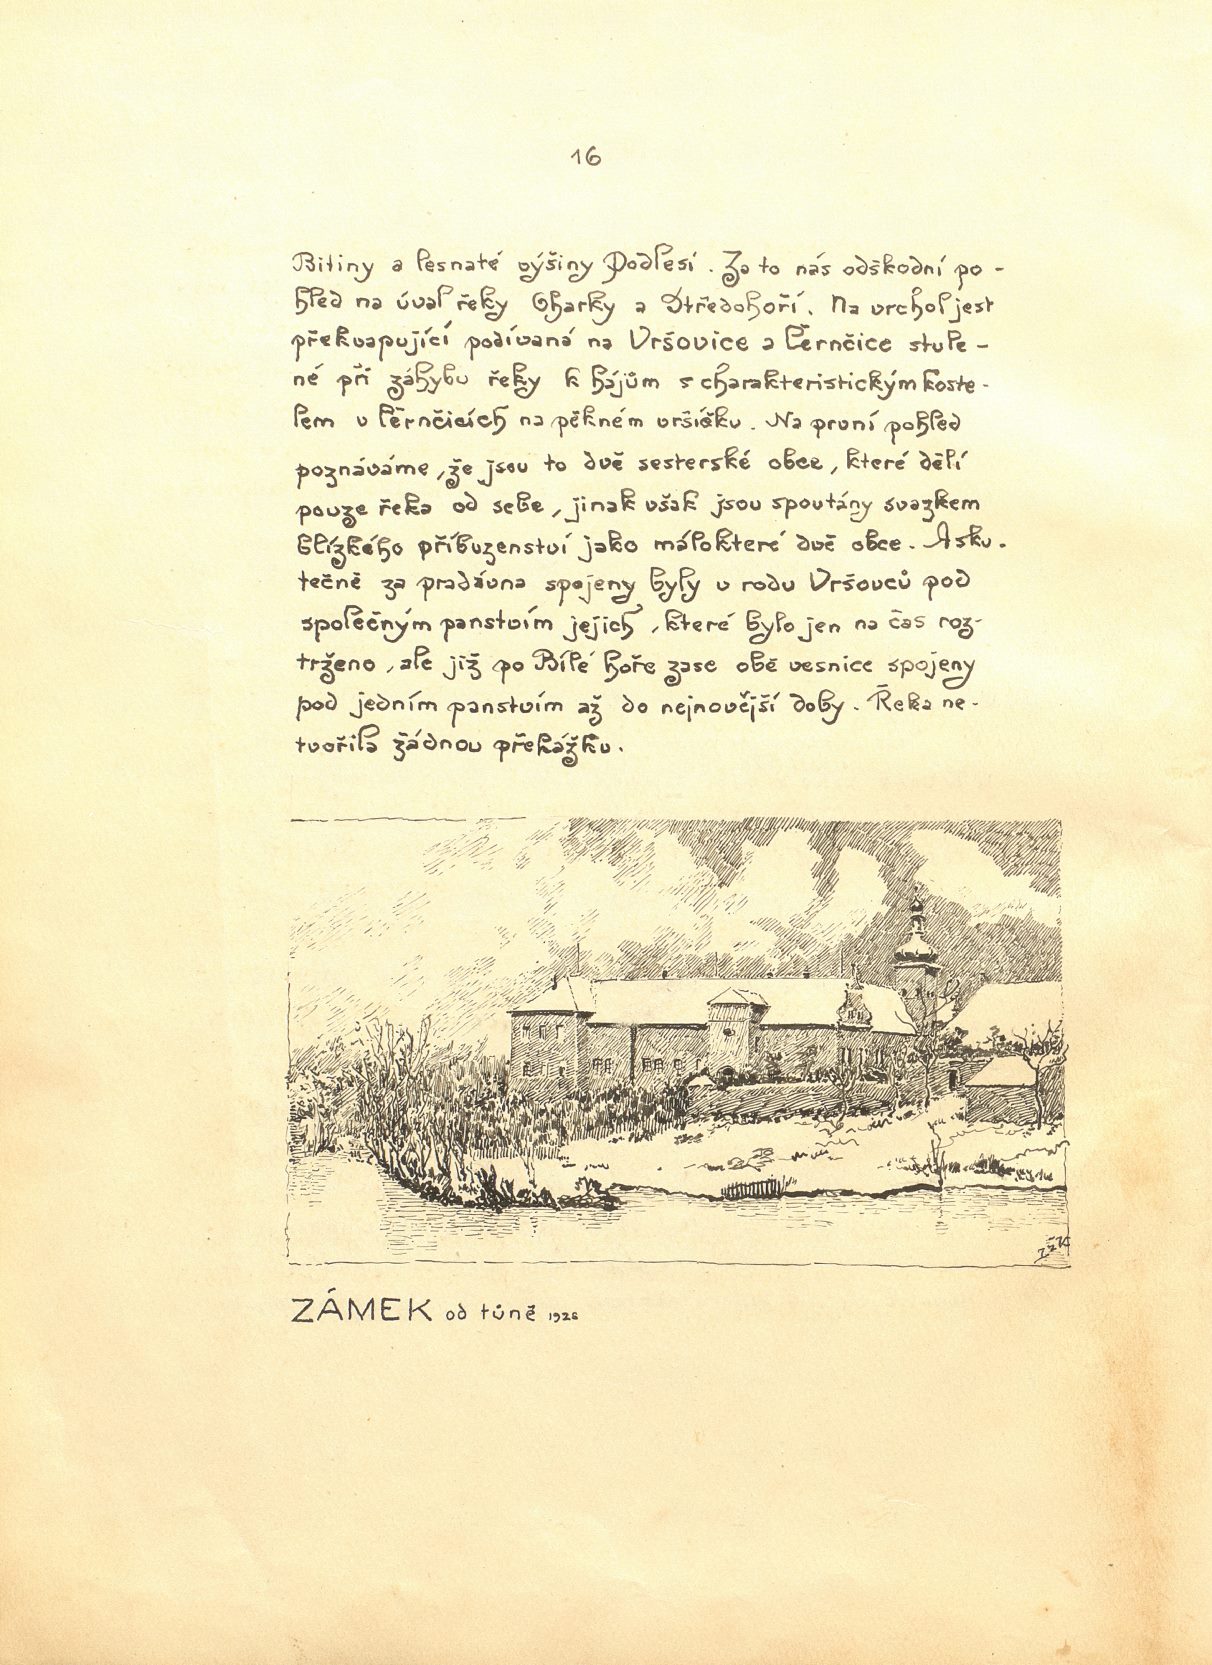 16
Bitiny a lesnaté výšiny Podlesí. Za to nás odškodní po-
hled na úval řeky Oharky a Středohoří. Na vrchol jest
překvapující podívaná na Vršovice a Černčice stule-
né při záhybu řeky k hájům s charakteristickým koste-
lem v Černčicích na pěkném vršíčku. Na první pohled
poznáváme, že jsou to dvě sesterské obce, které dělí
pouze řeka od sebe, jinak však jsou spoutány svazkem
blízkého příbuzenství jako málokteré dvě obce. A sku-
tečně za pradávna spojeny byly v rodu Vršovců pod
společným panstvím jejich, které bylo jen na čas roz-
trženo, ale již po Bílé hoře zase obě vesnice spojeny
pod jedním panstvím až do nejnovější doby. Řeka ne-
tvořila žádnou překážku.
ZÁMEK od tůně